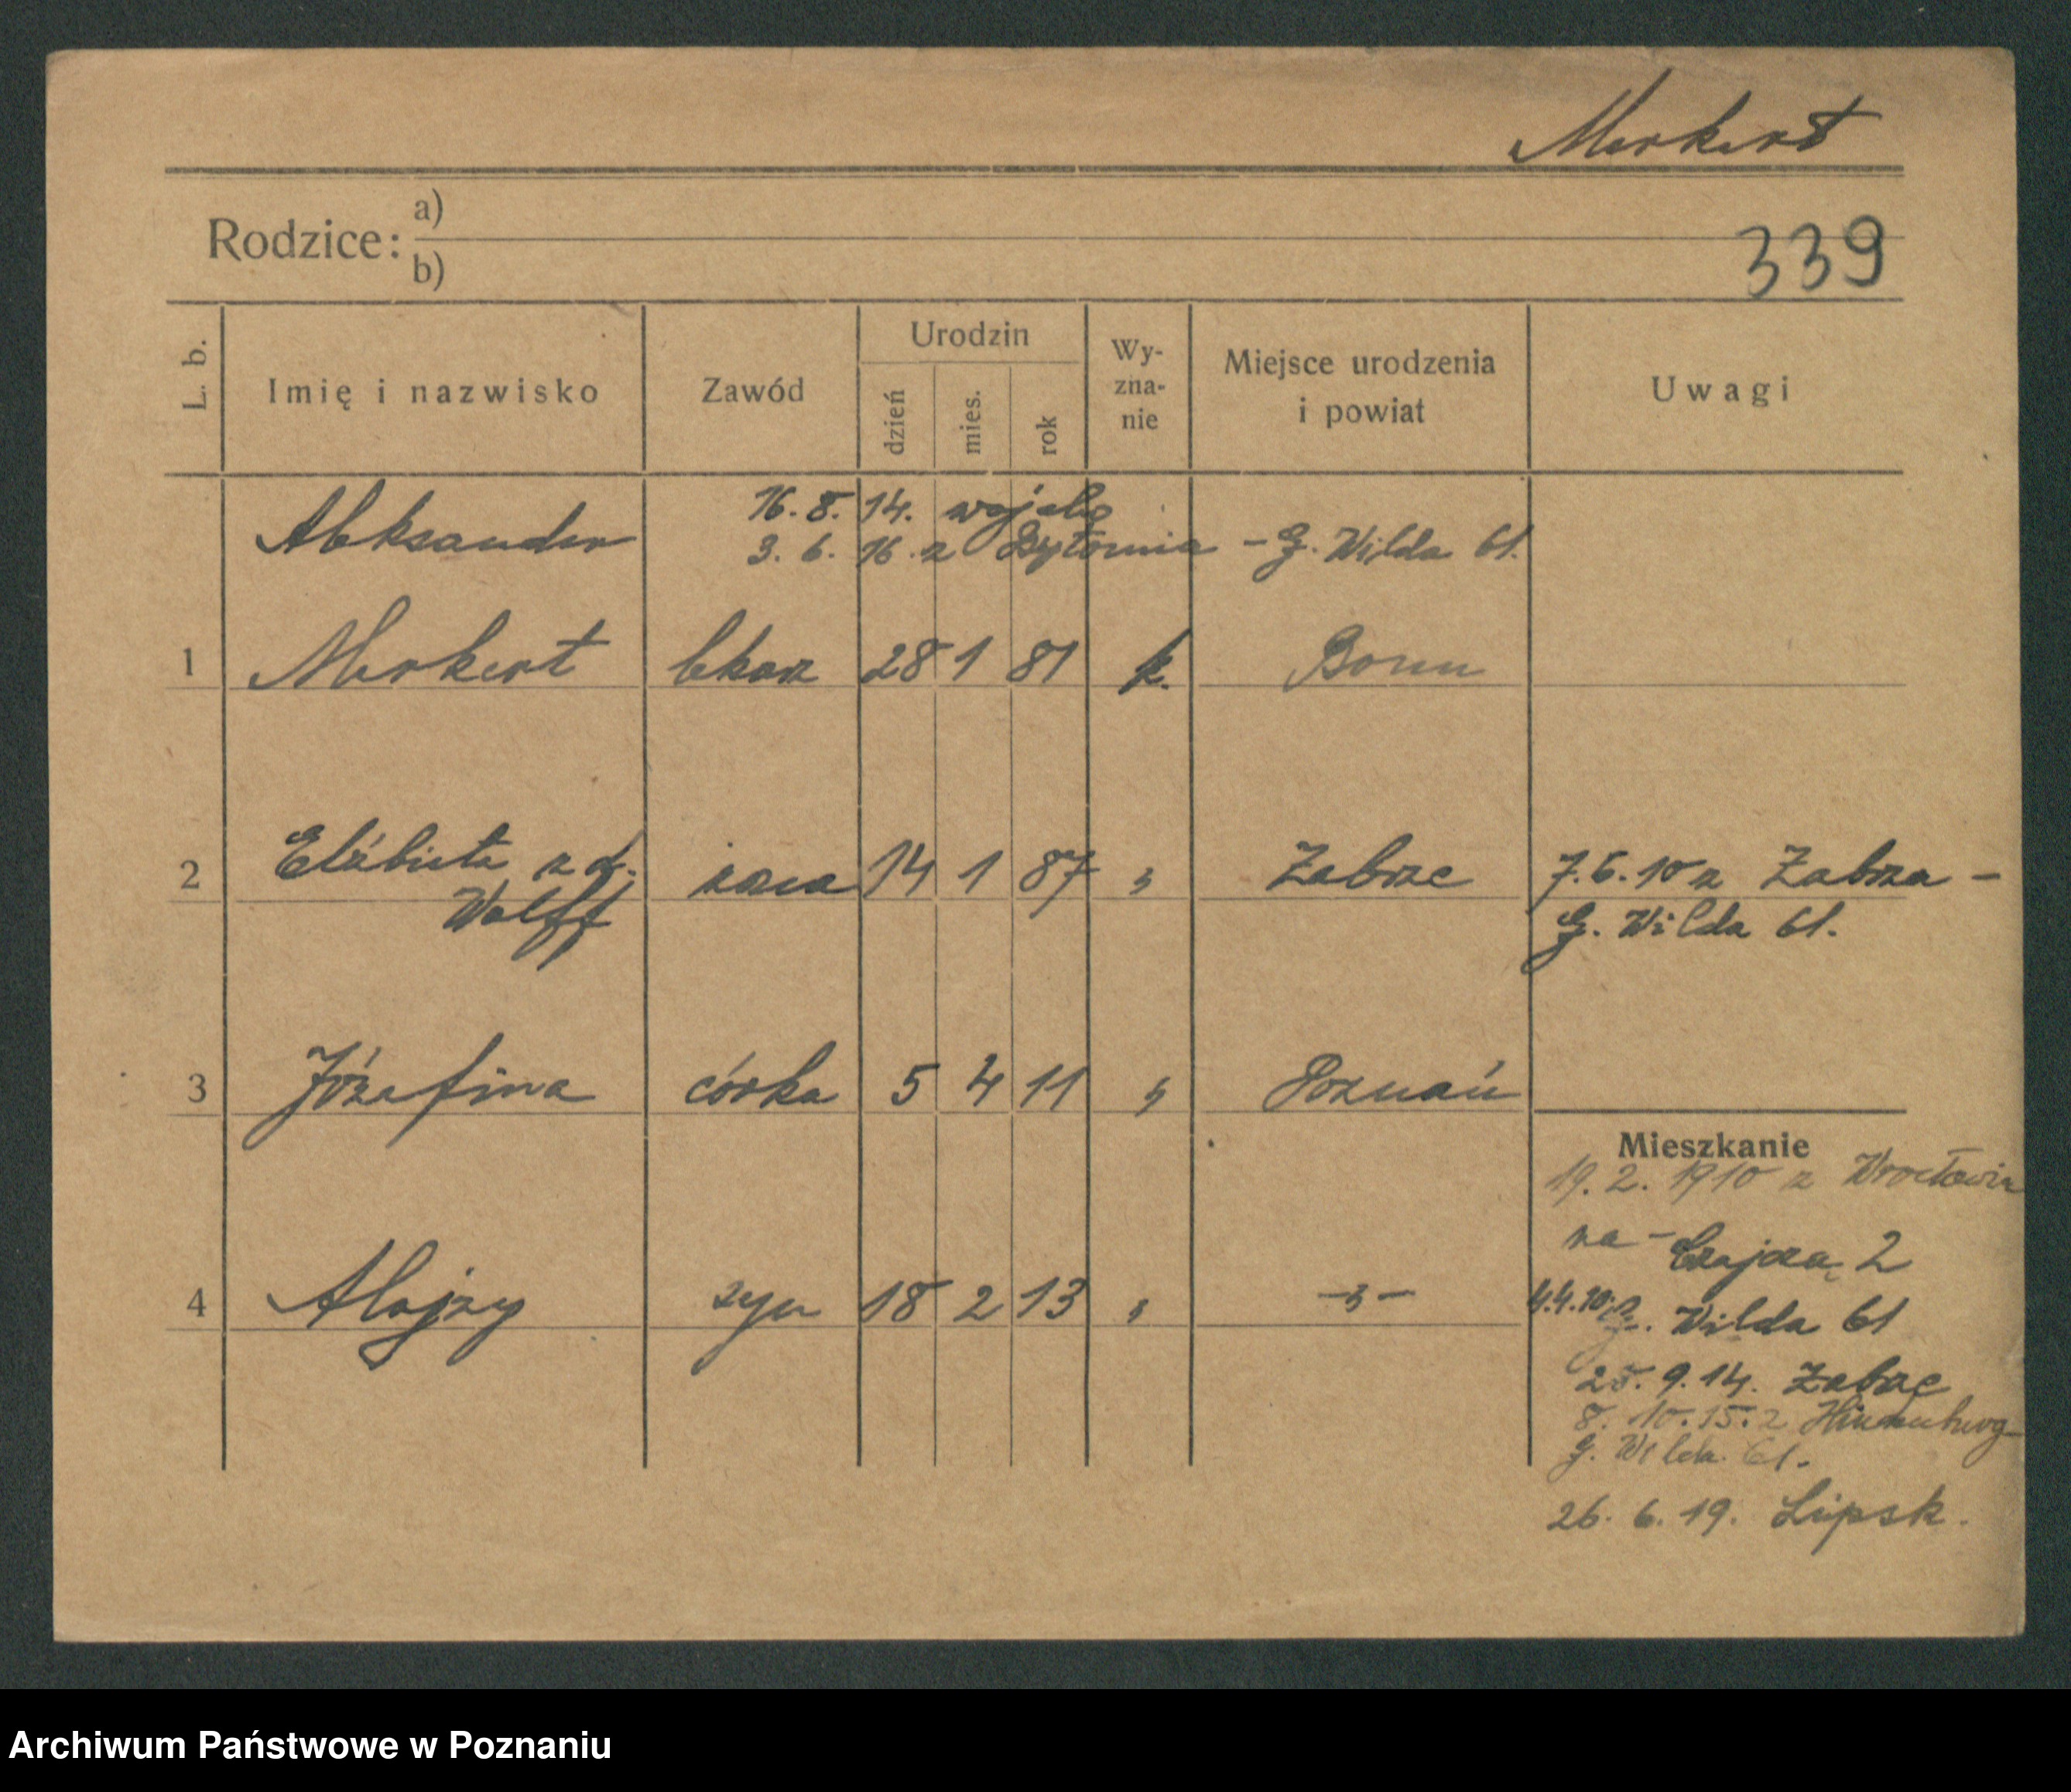 Merkert
Rodzice: a)
b)
339
L. b.
Imię i nazwisko
Zawód
Urodzin
dzień
mies.
rok
Wy-
zna-
nie
Miejsce urodzenia
i powiat
Uwagi
Aleksander
16. 8. 14. wojsko
3. 6. 16. z Bytomia - G. Wilda 61.
1 Merkert lekarz 28 1 81 k. Bonn
2 Elżbieta z d. żona 14 1 87 " Zabrze 7.6.10 z Zabrza -
Wolff G. Wilda 61.
3 Józefina córka 5 4 11 " Poznań
Mieszkanie
19. 2. 1910 z Wrocławia
na - 2
4 Alojzy syn 18 2 13 " -"- 4.4.10. G. Wilda 61
25. 9. 14. Zabrze
8. 10. 15. z Hindenburg
G. Wilda 61.
26. 6. 19. Lipsk.
Archiwum Państwowe w Poznaniu